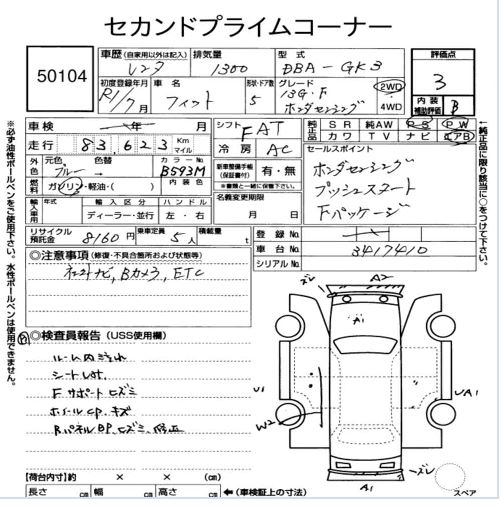 セカンドプライムコーナー
50104
車歴 (自家用以外は記入) レンタ
排気量 1300
型式 DBA-GK3
評価点 3
内装補助評価 B
初度登録年月 R1/7月
車名 フィット
形状・ドア数 5
グレード 13G・F ホンダセンシング
2WD
4WD
車検 年 月
シフト FAT
純正品 SR 純AW PS PW
カワ TV ナビ エアB
走行 83,623 Km マイル
冷房 AC
外色 元色 ブルー → 色替
カラーNo. B593M
内装色
燃料 ガソリン・軽油・( )
新車整備手帳(保証書付) 有・無
※書類と一緒に保管下さい。
セールスポイント
ホンダセンシング
プッシュスタート
Fパッケージ
輸入車 年式 輸入区分 ハンドル
ディーラー・並行 左・右
名義変更期限 月 日
リサイクル預託金 8160円
乗車定員 5人
積載量 t
登録No.
車台No. 3417410
シリアルNo.
◎注意事項 (修復・不具合箇所および状態等)
ナビ, Bカメラ, ETC
◎検査員報告 (USS使用欄)
ルーム内
シート
Fサポートヒズミ
ホイールCP. キズ
RパネルBP.ヒズミ、修正
ズレ A2
A1
U1
UA1
W2
ズレ
A1
スペア
【荷台内寸】約 × × (cm)
長さ cm 幅 cm 高さ cm ←(車検証上の寸法)
※必ず油性ボールペンをご使用下さい。水性ボールペンは使用できません。
←純正品に限り該当に○をつけて下さい。